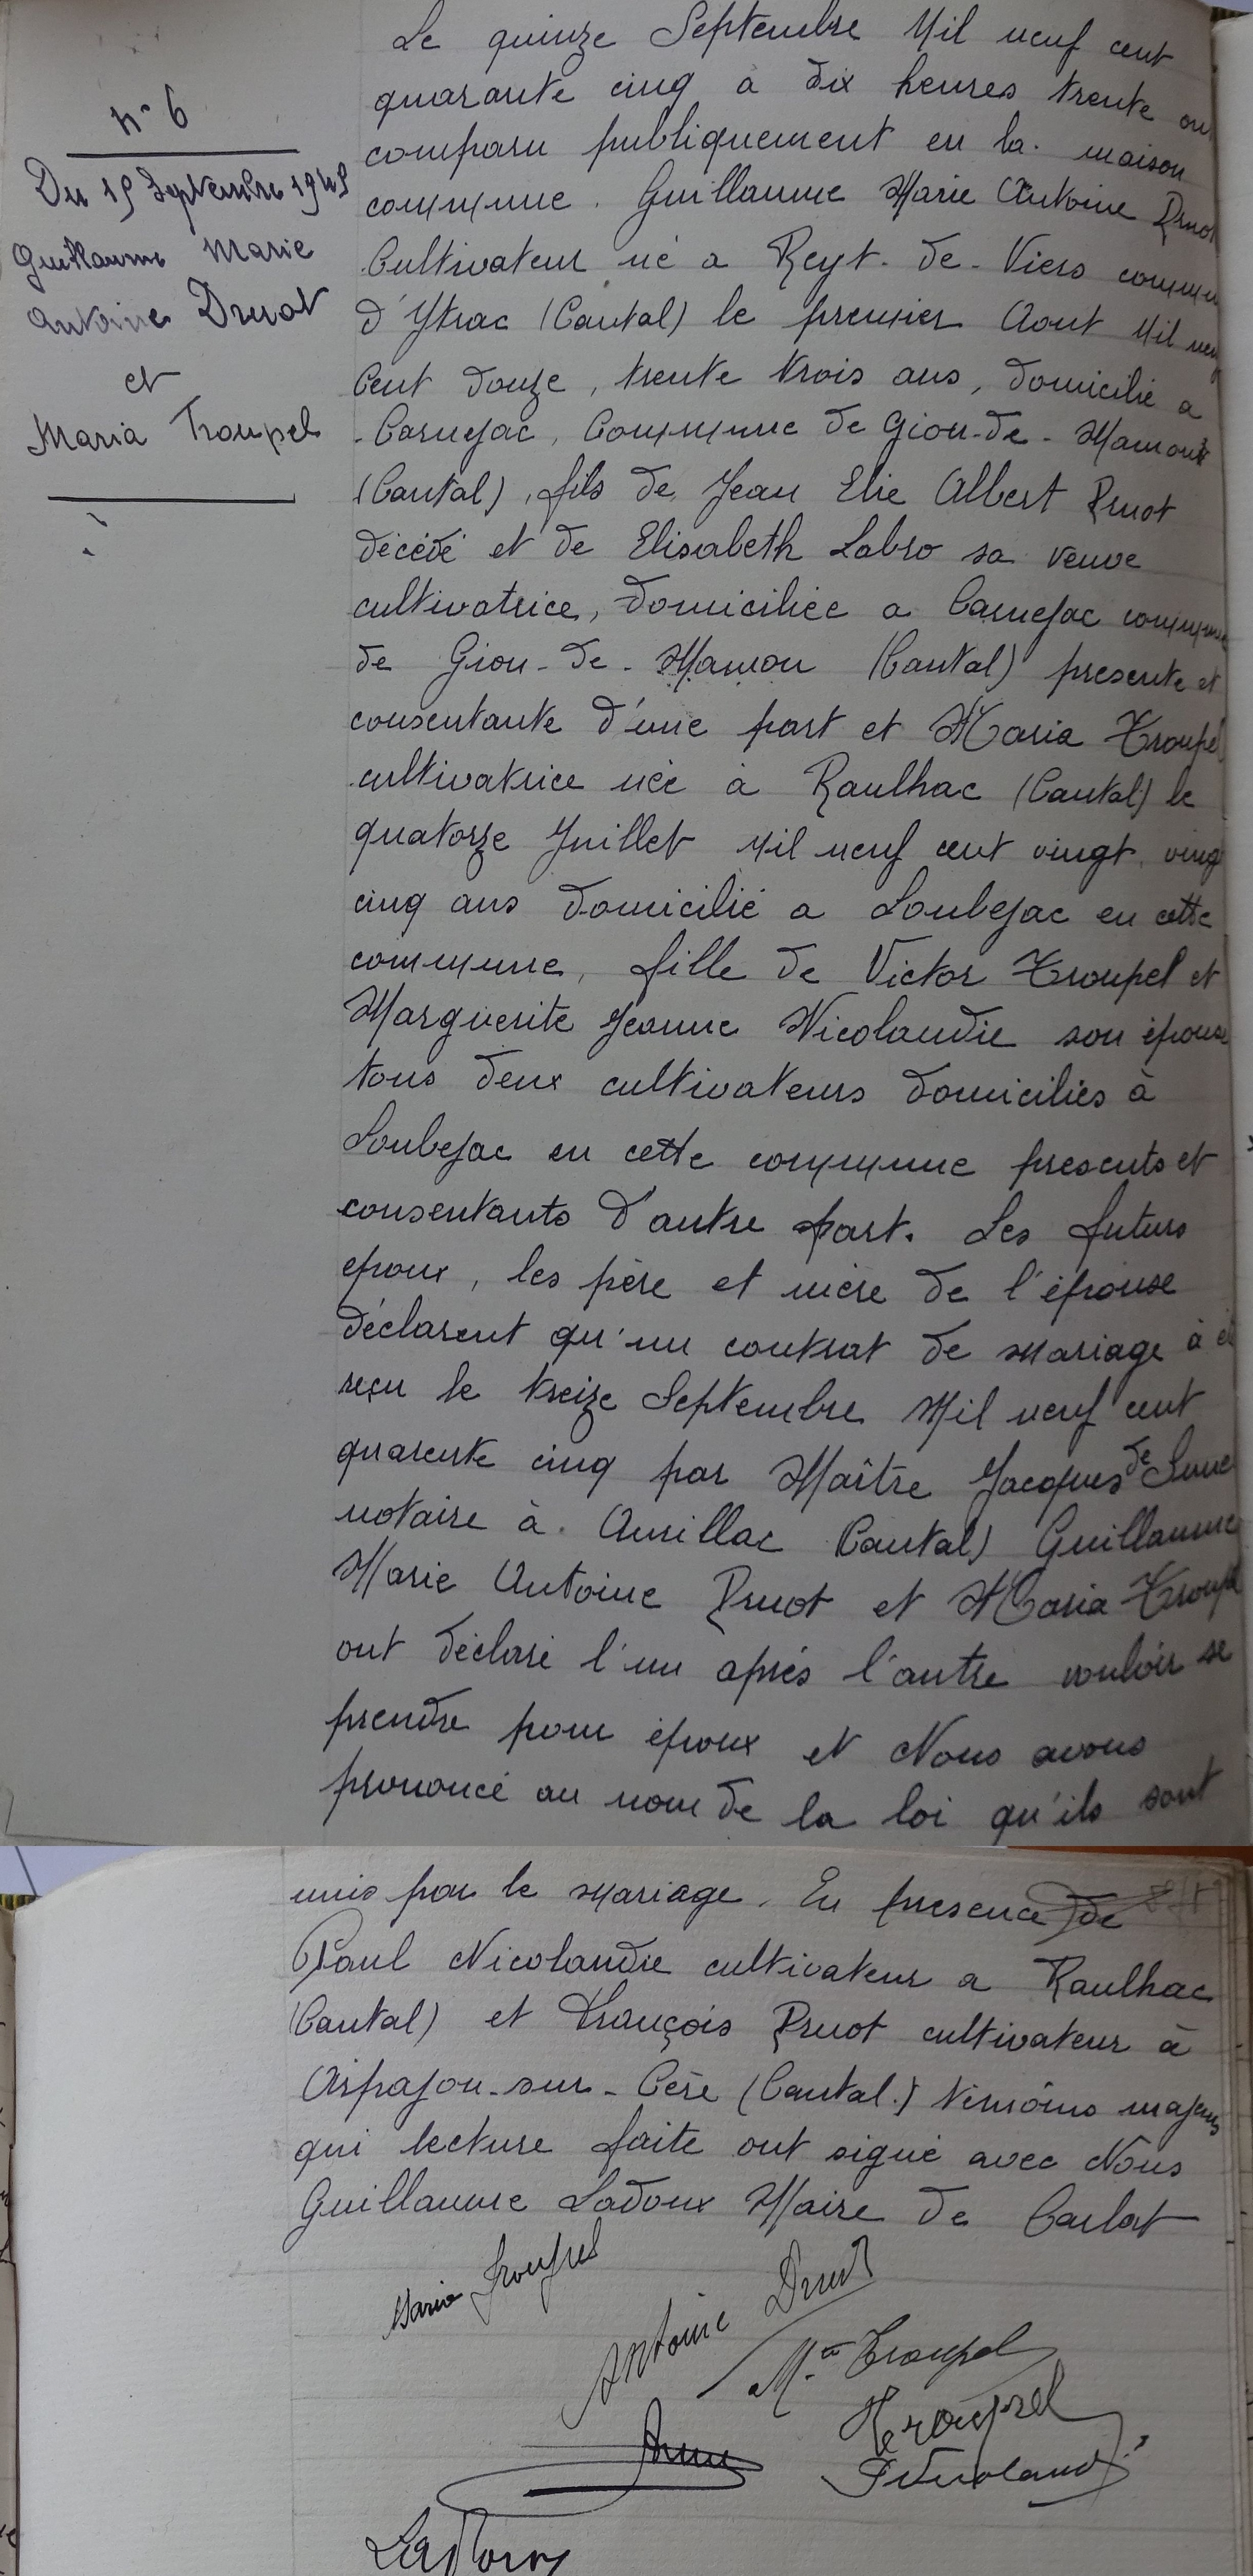 n° 6
Du 15 Septembre 1945
Guillaume Marie
Antoine Druot
et
Maria Troupel
Le quinze Septembre Mil neuf cent
quarante cinq a dix heures trente ont
comparu publiquement en la maison
commune. Guillaume Marie Antoine Druot
Cultivateur né a Reyt-de-Viers commune
d'Ytrac (Cantal) le premier Aout Mil neuf
Cent douze, trente trois ans, domicilié a
Carnejac, Commune de Giou-de-Mamou
(Cantal), fils de Jean Elie Albert Druot
décédé et de Elisabeth Labro sa veuve
cultivatrice, domiciliée a Carnejac commune
de Giou-de-Mamou (Cantal) presente et
consentante d'une part et Maria Troupel
cultivatrice née à Raulhac (Cantal) le
quatorze Juillet Mil neuf cent vingt, vingt
cinq ans domicilié a Loubejac en cette
commune, fille de Victor Troupel et
Marguerite Jeanne Nicolaudie son épouse
tous deux cultivateurs domiciliés à
Loubejac en cette commune presents et
consentants d'autre part. Les futurs
epoux, les père et mère de l'épouse
déclarent qu'un contrat de mariage à été
reçu le treize Septembre Mil neuf cent
quarente cinq par Maître Jacques de
notaire à Aurillac Cantal) Guillaume
Marie Antoine Druot et Maria Troupel
ont déclaré l'un après l'autre vouloir se
prendre pour époux et Nous avons
prononcé au nom de la loi qu'ils sont
unis par le mariage. En presence de
Paul Nicolaudie cultivateur a Raulhac
(Cantal) et François Druot cultivateur à
Arpajon-sur-Cère (Cantal.) témoins majeurs
qui lecture faite ont signé avec Nous
Guillaume Ladoux Maire de Carlat
Maria Troupel
Antoine Druot
M. Troupel
Troupel
P Nicolaudie
Ladoux